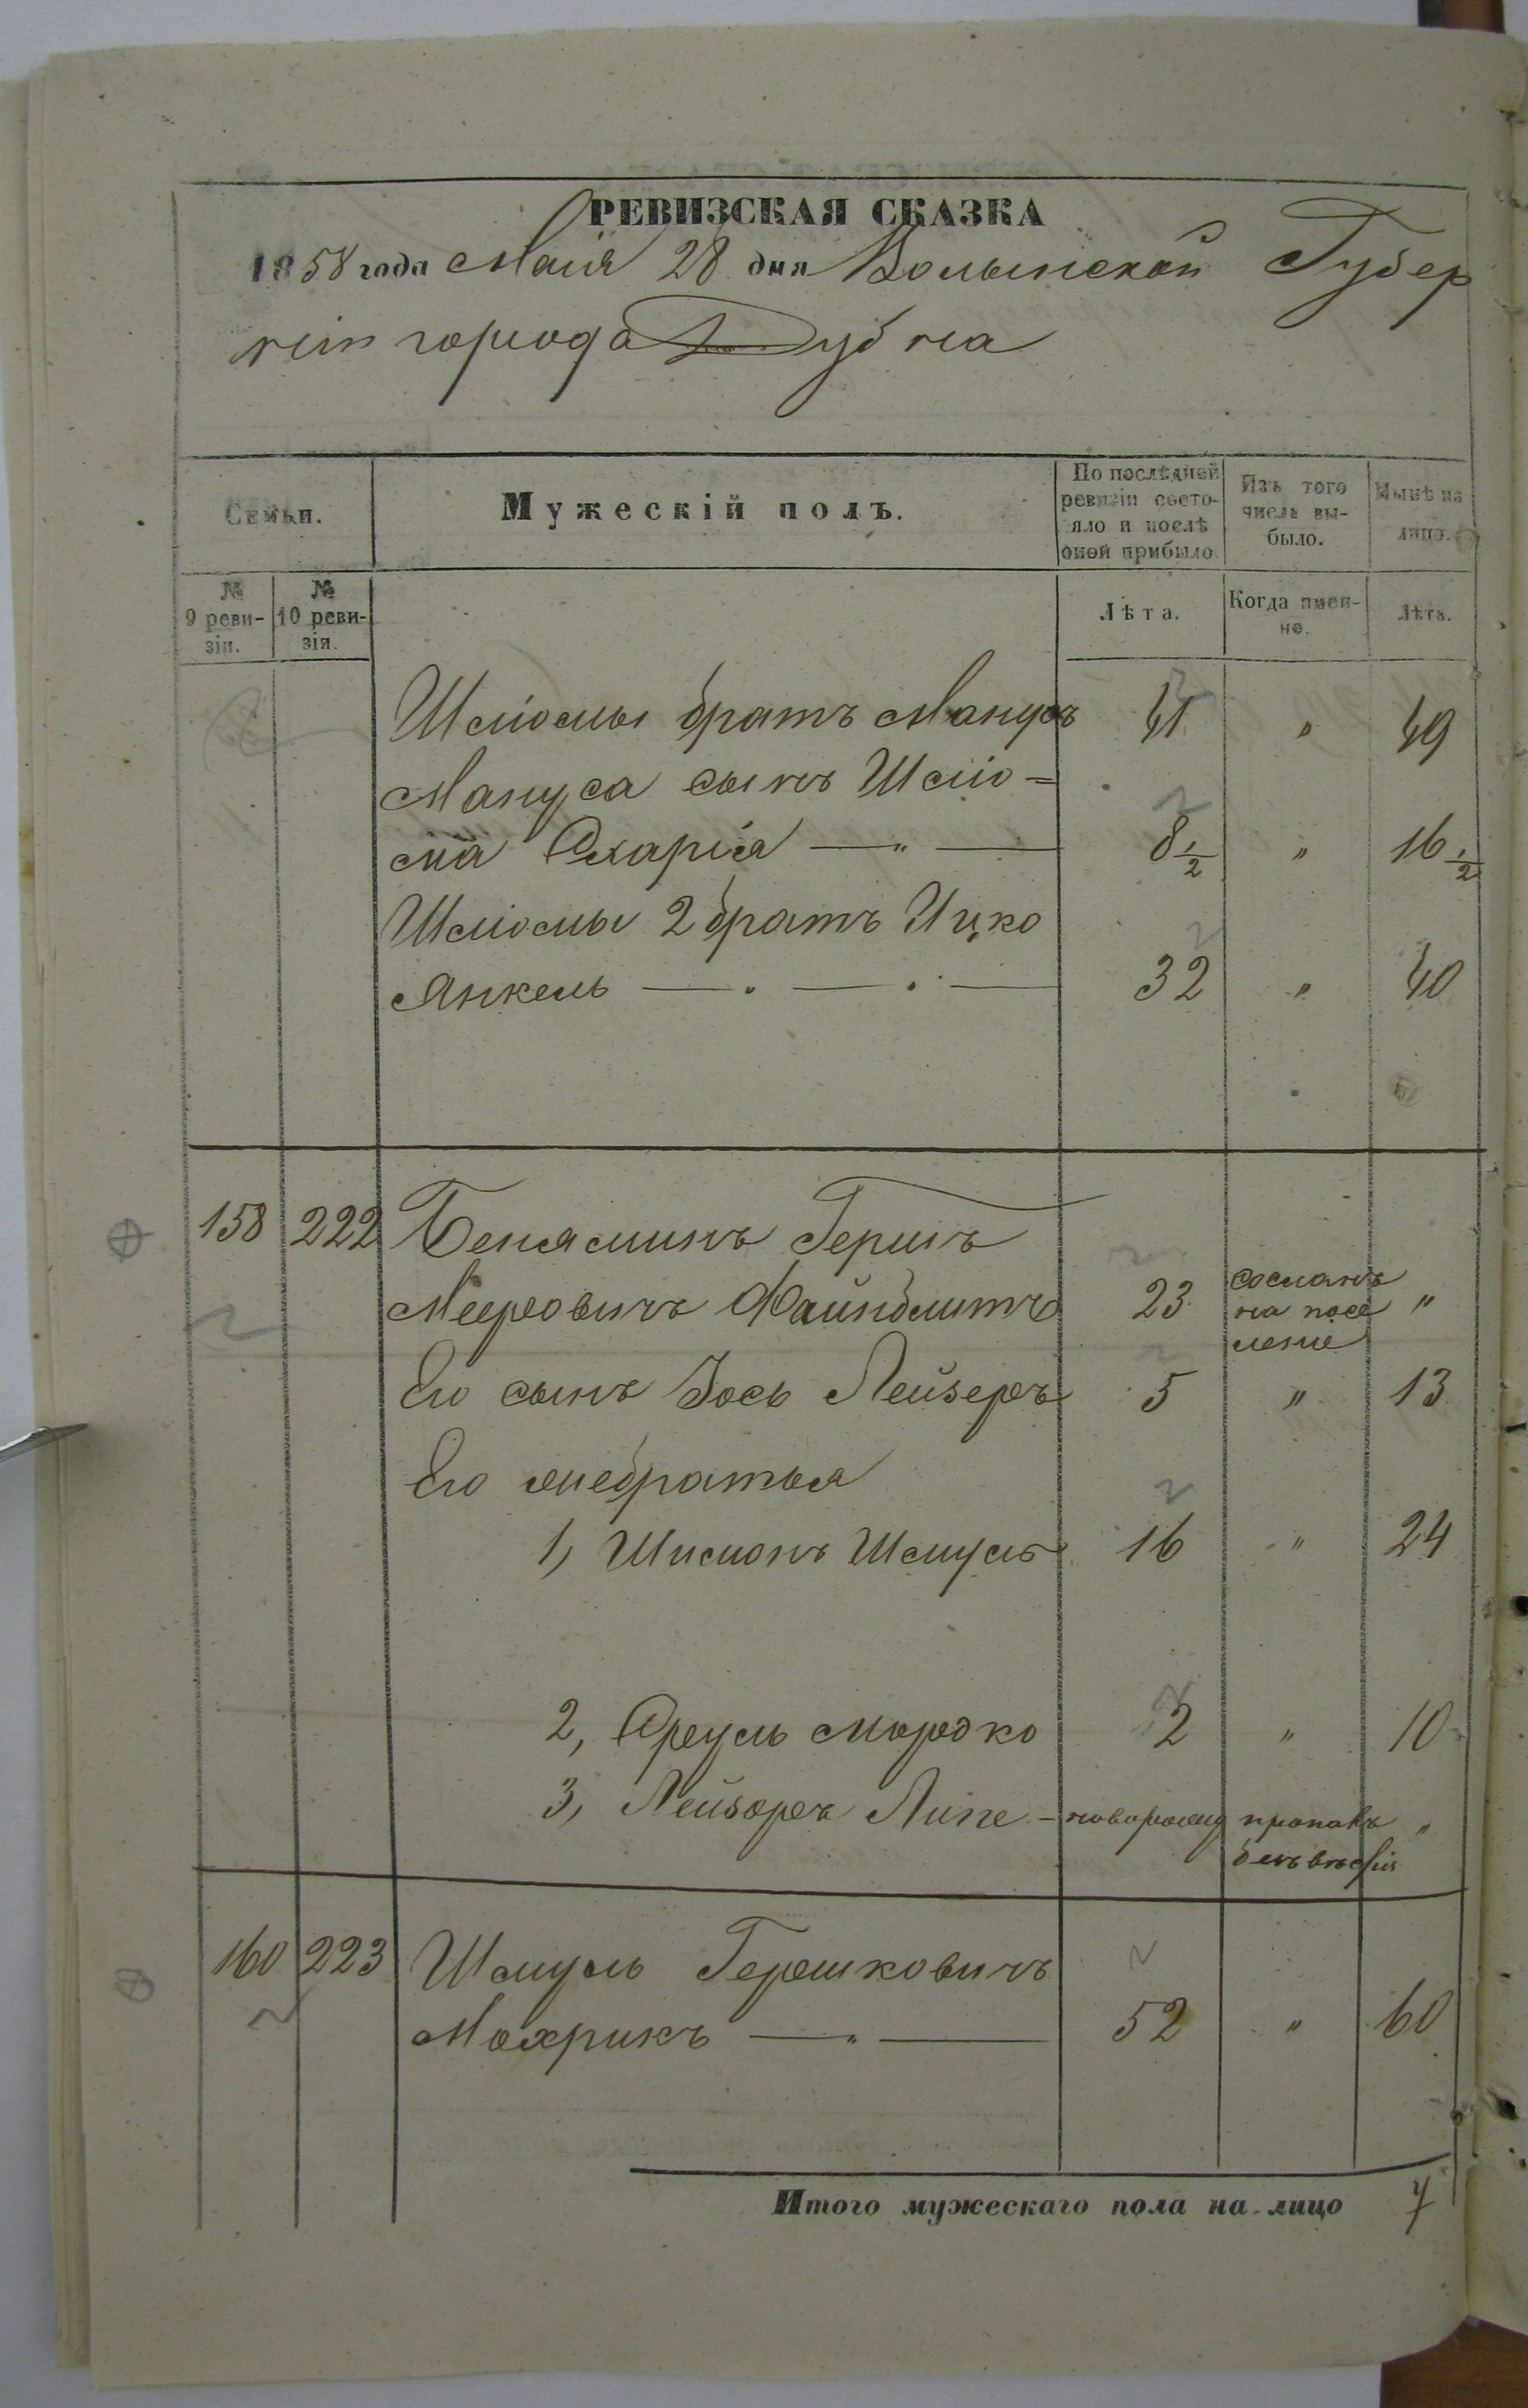 РЕВИЗСКАЯ СКАЗКА
1858 года Маія 28 дня Волынской Губер
ніи города Дубна
Семьи.
Мужескій полъ.
По послѣдней ревизіи состо-
яло и послѣ оной прибыло.
Изъ того числа вы-
было.
Нынѣ на лицо.
№ 9 реви-
зіи.
№ 10 реви-
зія.
Лѣта.
Когда имен-
но.
Лѣта.
Шліомы братъ Манусъ 41 " 49
Мануса сынъ Шліо=
ма Сахарія — " — 8 1/2 " 16 1/2
Шліомы 2 братъ Ицко
Янкель — . — . — 32 " 40
158 222 Беняминъ Гершъ
Мееровичъ Файнблитъ 23 сосланъ на посе
леніе "
Его сынъ Іось Лейзеръ 5 " 13
Его же братья
1, Шимонъ Шмуль 16 " 24
2, Сруль Мордко 2 " 10
3, Лейзоръ Липе – новорожд пропалъ "
безъ вѣстія
160 223 Шмуль Гершковичъ
Мохрикъ — " — 52 " 60
Итого мужескаго пола на-лицо 7